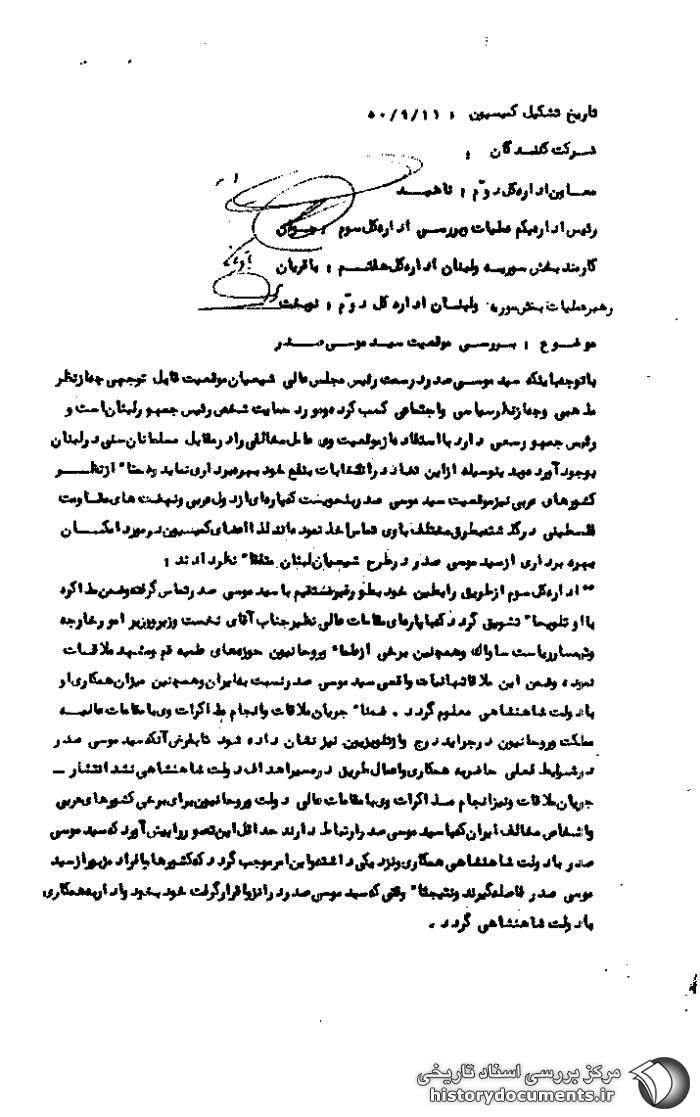 تاریخ تشکیل کمیسیون : ۵۰/۹/۱۱
شرکت کنندگان :
معاون اداره کل دوم : ناهید
رئیس اداره یکم عملیات و بررسی اداره کل سوم : جوان
کارمند بخش سوریه و لبنان اداره کل هفتم : باقریان
رهبر عملیات بخش سوریه و لبنان اداره کل دوم : نوبخت
موضوع : بررسی موقعیت سید موسی صدر
با توجه باینکه سید موسی صدر در سمت رئیس مجلس عالی شیعیان موقعیت قابل توجهی چه از نظر
مذهبی و چه از نظر سیاسی و اجتماعی کسب کرده و مورد حمایت شخص رئیس جمهور لبنان است و
رئیس جمهور سعی دارد با استفاده از موقعیت وی عامل مخالفی را در مقابل مسلمانان سنی در لبنان
بوجود آورد و بدینوسیله از این تضاد در انتخابات بنفع خود بهره برداری نماید و ضمنا" از نظر
کشورهای عربی نیز موقعیت سید موسی صدر بنحویست که پاره ای از دول عربی و نهضت های مقاومت
فلسطینی در گذشته بطرق مختلف با وی تماس اخذ نموده اند لذا اعضای کمیسیون در مورد امکان
بهره برداری از سید موسی صدر در طرح شیعیان لبنان متفقا" نظر دادند :
"" اداره کل سوم از طریق رابطین خود بطور غیر مستقیم با سید موسی صدر تماس گرفته و ضمن مذاکره
با او تلویحا" تشویق گردد که با پاره ای مقامات عالی نظیر جناب آقای نخست وزیر و وزیر امور خارجه
و تیمسار ریاست ساواک و همچنین برخی از علماء و روحانیون حوزه های علمیه قم و مشهد ملاقات
نموده و ضمن این ملاقاتها نیات واقعی سید موسی صدر نسبت به ایران و همچنین میزان همکاری او
با دولت شاهنشاهی معلوم گردد . ضمنا" جریان ملاقات و انجام مذاکرات وی با مقامات عالیه
مملکت و روحانیون در جراید درج و از تلویزیون نیز نشان داده شود تا بفرض آنکه سید موسی صدر
در شرایط فعلی حاضر به همکاری و اعمال طریق در مسیر اهداف دولت شاهنشاهی نشد انتشار ـ
جریان ملاقات و نیز انجام مذاکرات وی با مقامات عالی دولت و روحانیون برای برخی کشورهای عربی
و اشخاص مخالف ایران که با سید موسی صدر ارتباط دارند حداقل این تصور را پیش آورد که سید موسی
صدر با دولت شاهنشاهی همکاری و نزدیکی داشته و این امر موجب گردد که کشورها یا افراد مزبور از سید
موسی صدر فاصله گیرند و نتیجتا" وقتی که سید موسی صدر در انزوا قرار گرفت خود بخود وادار به همکاری
با دولت شاهنشاهی گردد .
مرکز بررسی اسناد تاریخی
historydocuments.ir